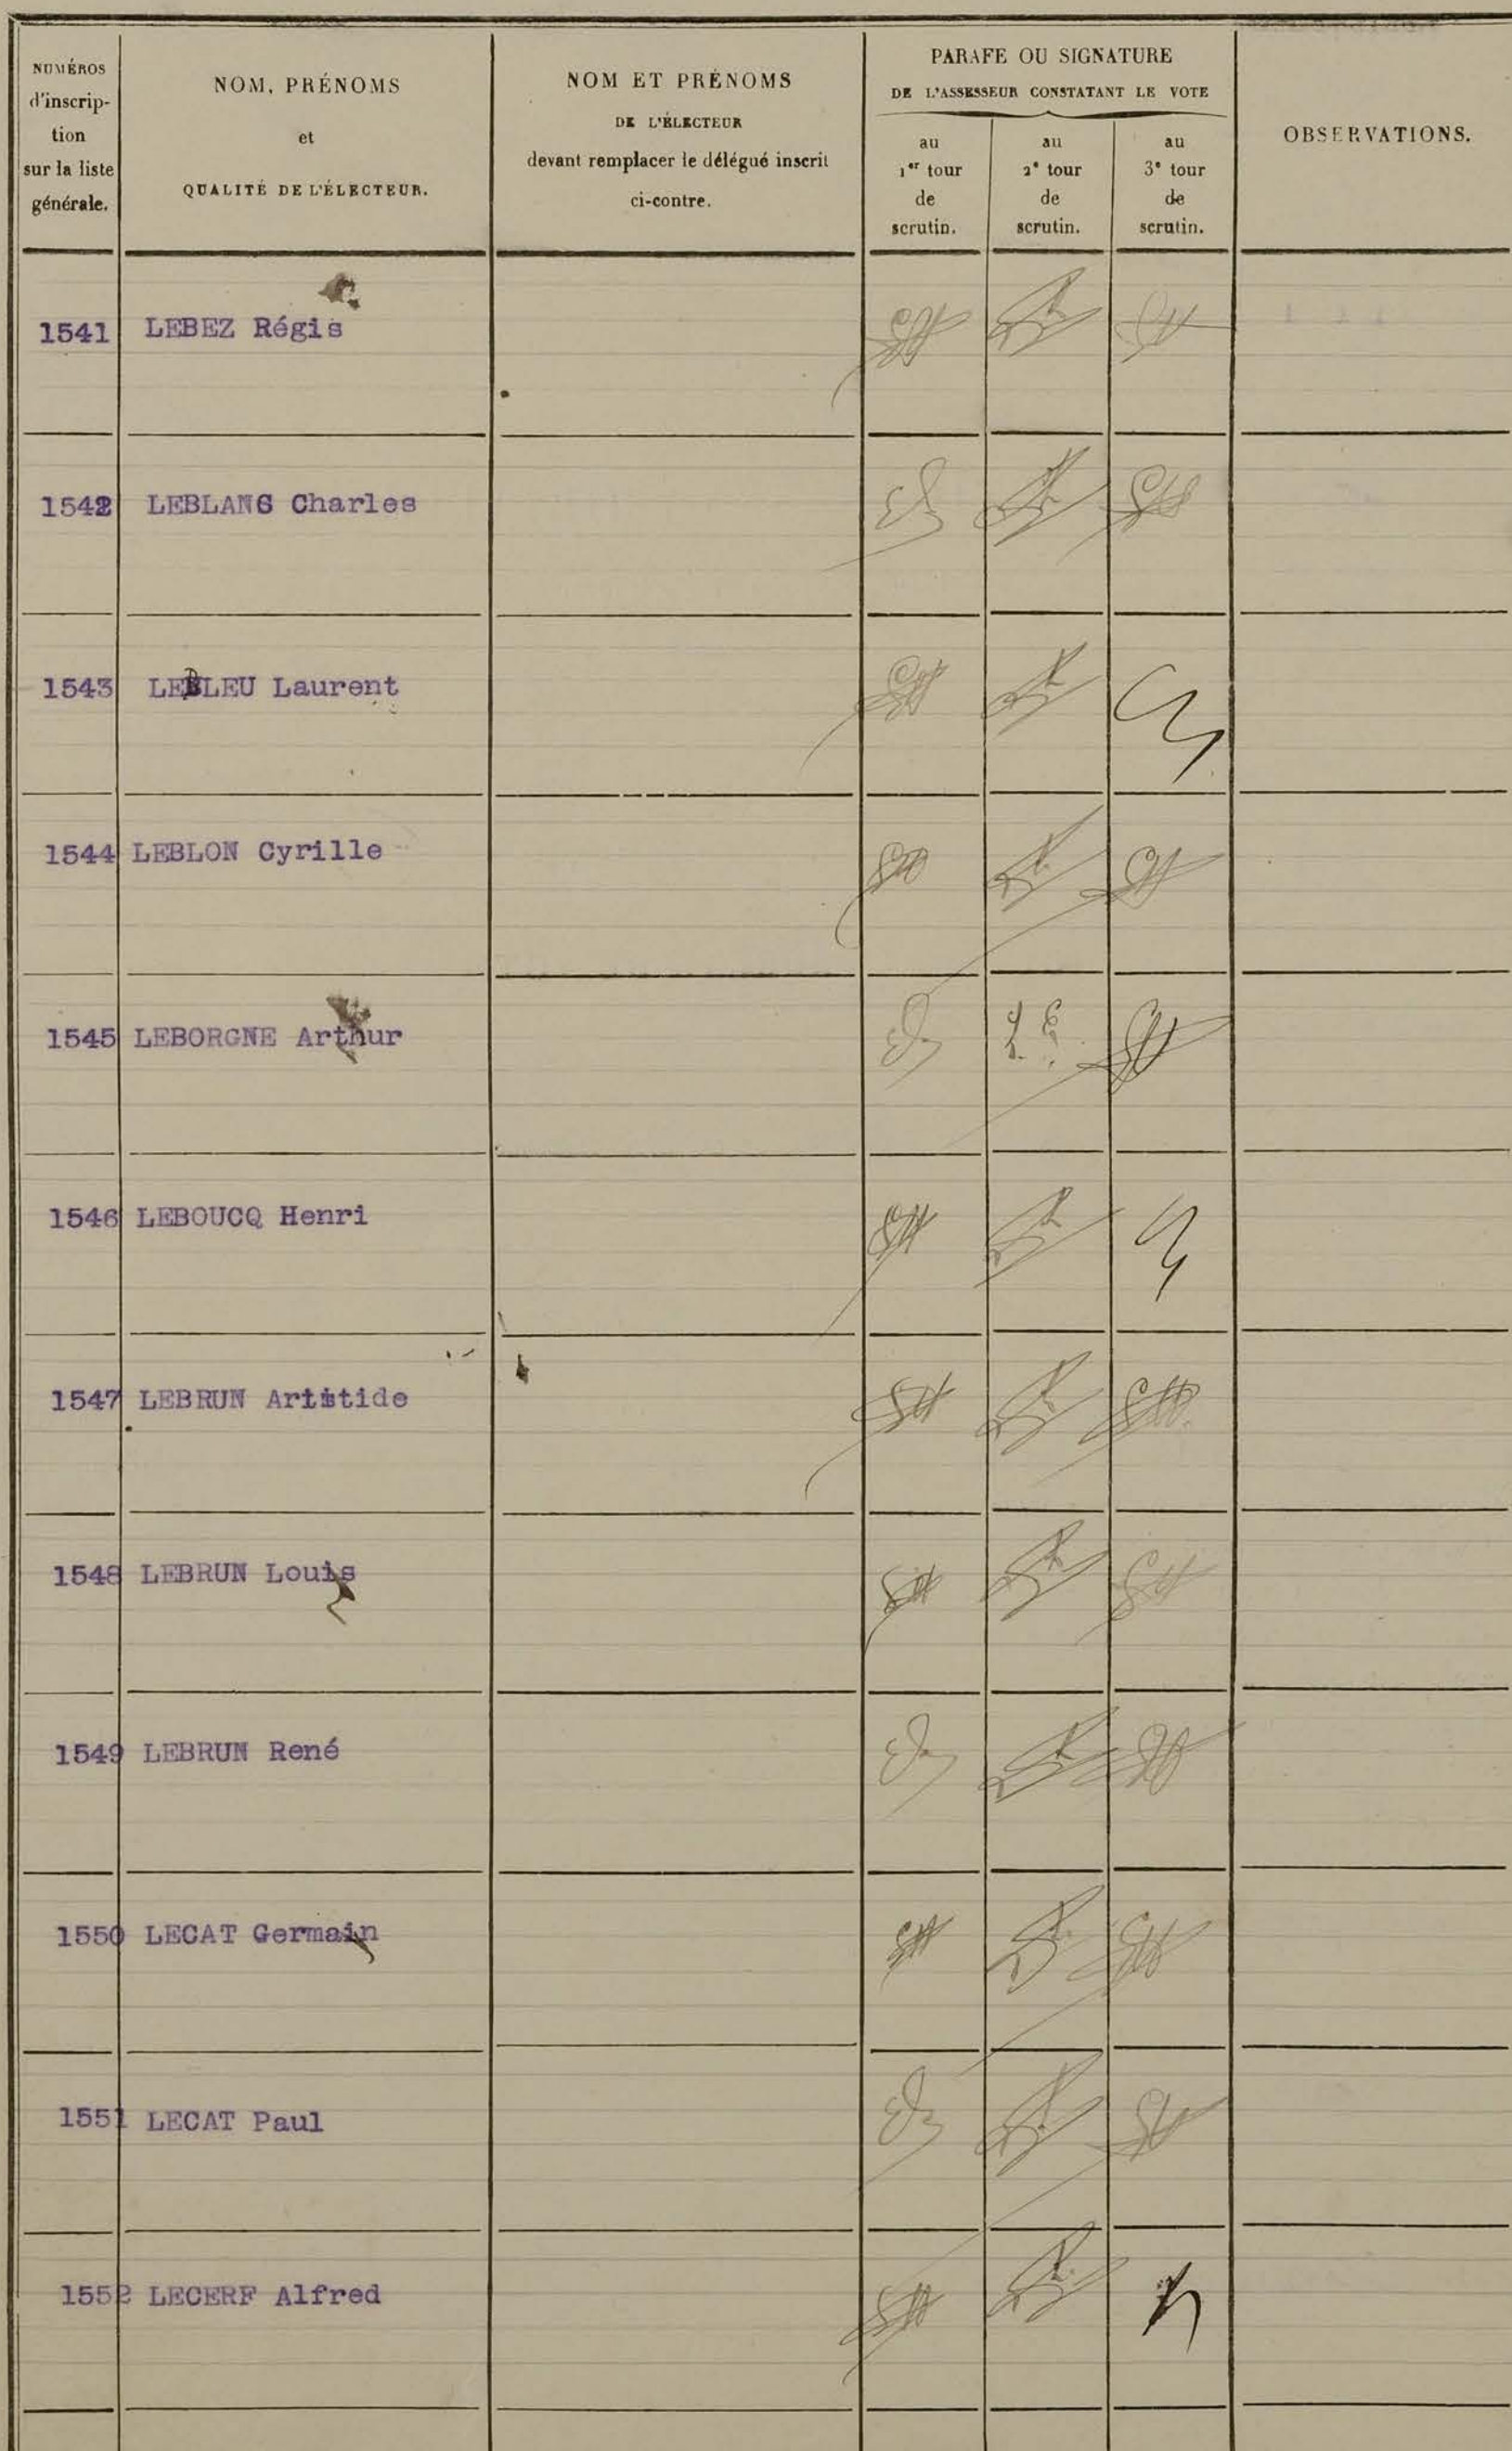 NUMÉROS
d'inscrip-
tion
sur la liste
générale.
NOM, PRÉNOMS
et
QUALITÉ DE L'ÉLECTEUR.
NOM ET PRÉNOMS
DE L'ÉLECTEUR
devant remplacer le délégué inscrit
ci-contre.
PARAFE OU SIGNATURE
DE L'ASSESSEUR CONSTATANT LE VOTE
au
1er tour
de
scrutin.
au
2e tour
de
scrutin.
au
3e tour
de
scrutin.
OBSERVATIONS.
1541 LEBEZ Régis
1542 LEBLANG Charles
1543 LEBLEU Laurent
1544 LEBLON Cyrille
1545 LEBORGNE Arthur
1546 LEBOUCQ Henri
1547 LEBRUN Aristide
1548 LEBRUN Louis
1549 LEBRUN René
1550 LECAT Germain
1551 LECAT Paul
1552 LECERF Alfred